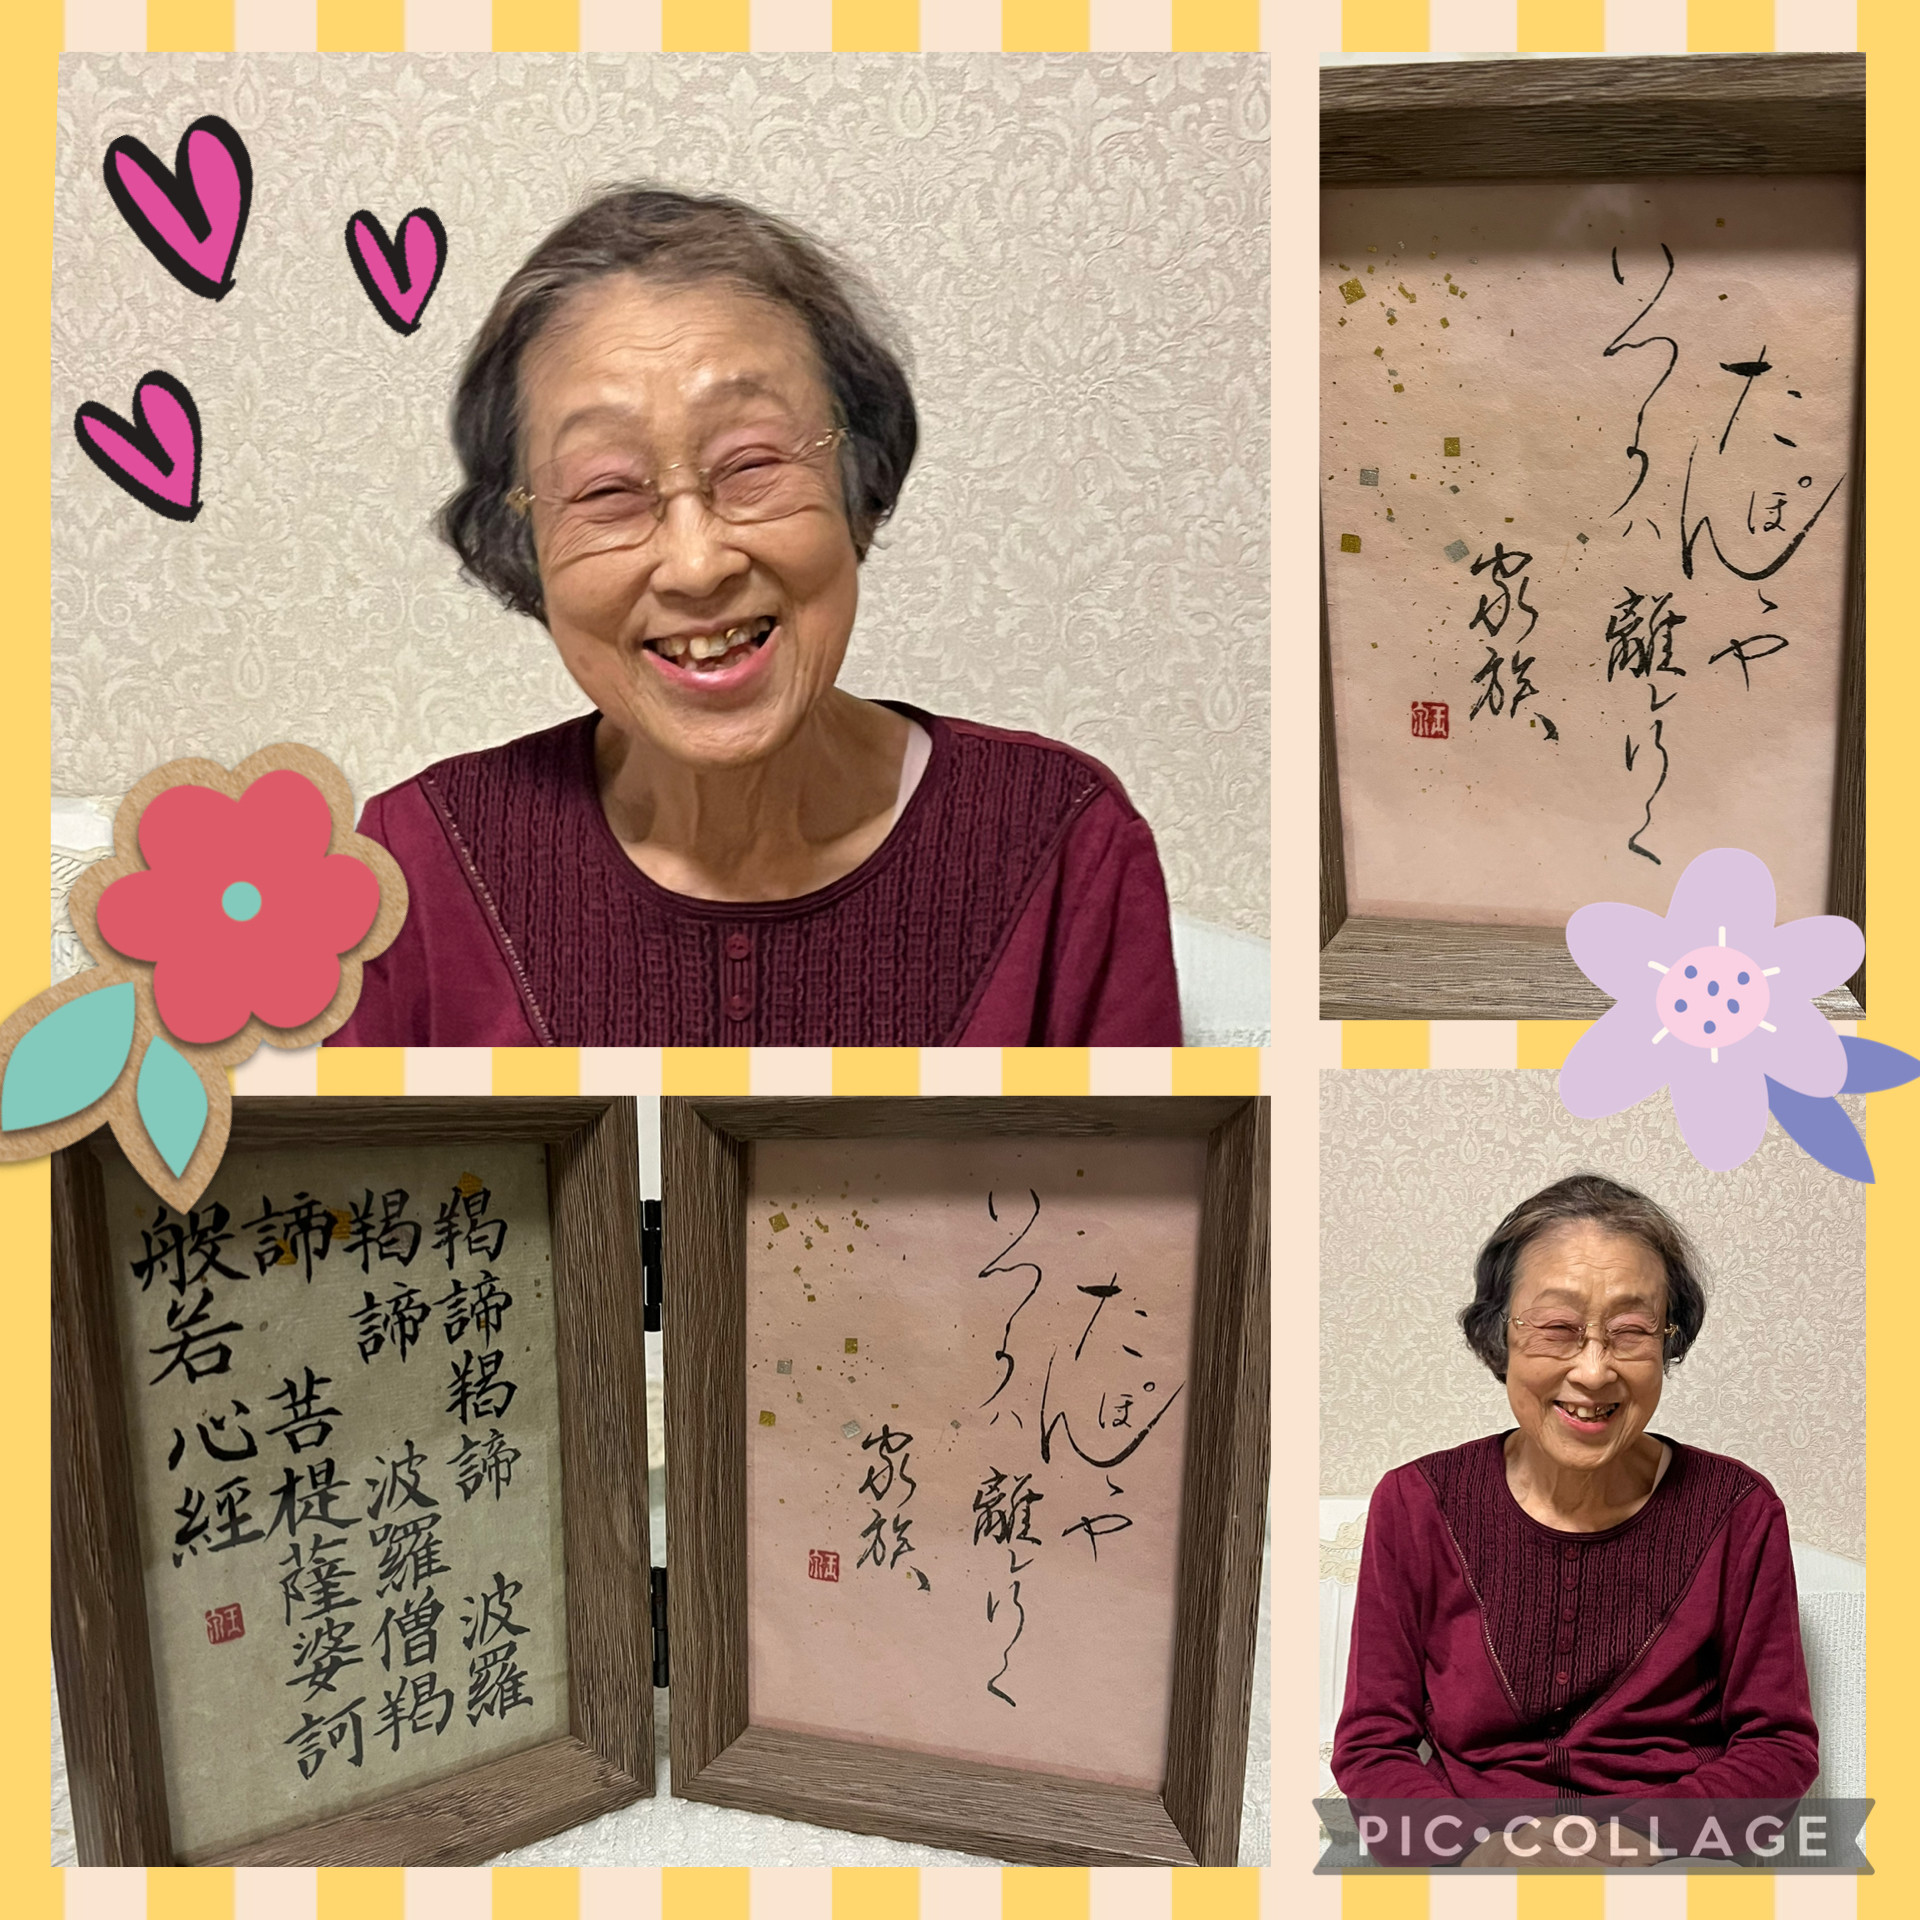 たんぽゝや
いつかハ離れ行く
家族
羯諦羯諦 波羅
羯諦 波羅僧羯
諦 菩提薩婆訶
般若心經
たんぽゝや
いつかハ離れ行く
家族
PIC•COLLAGE